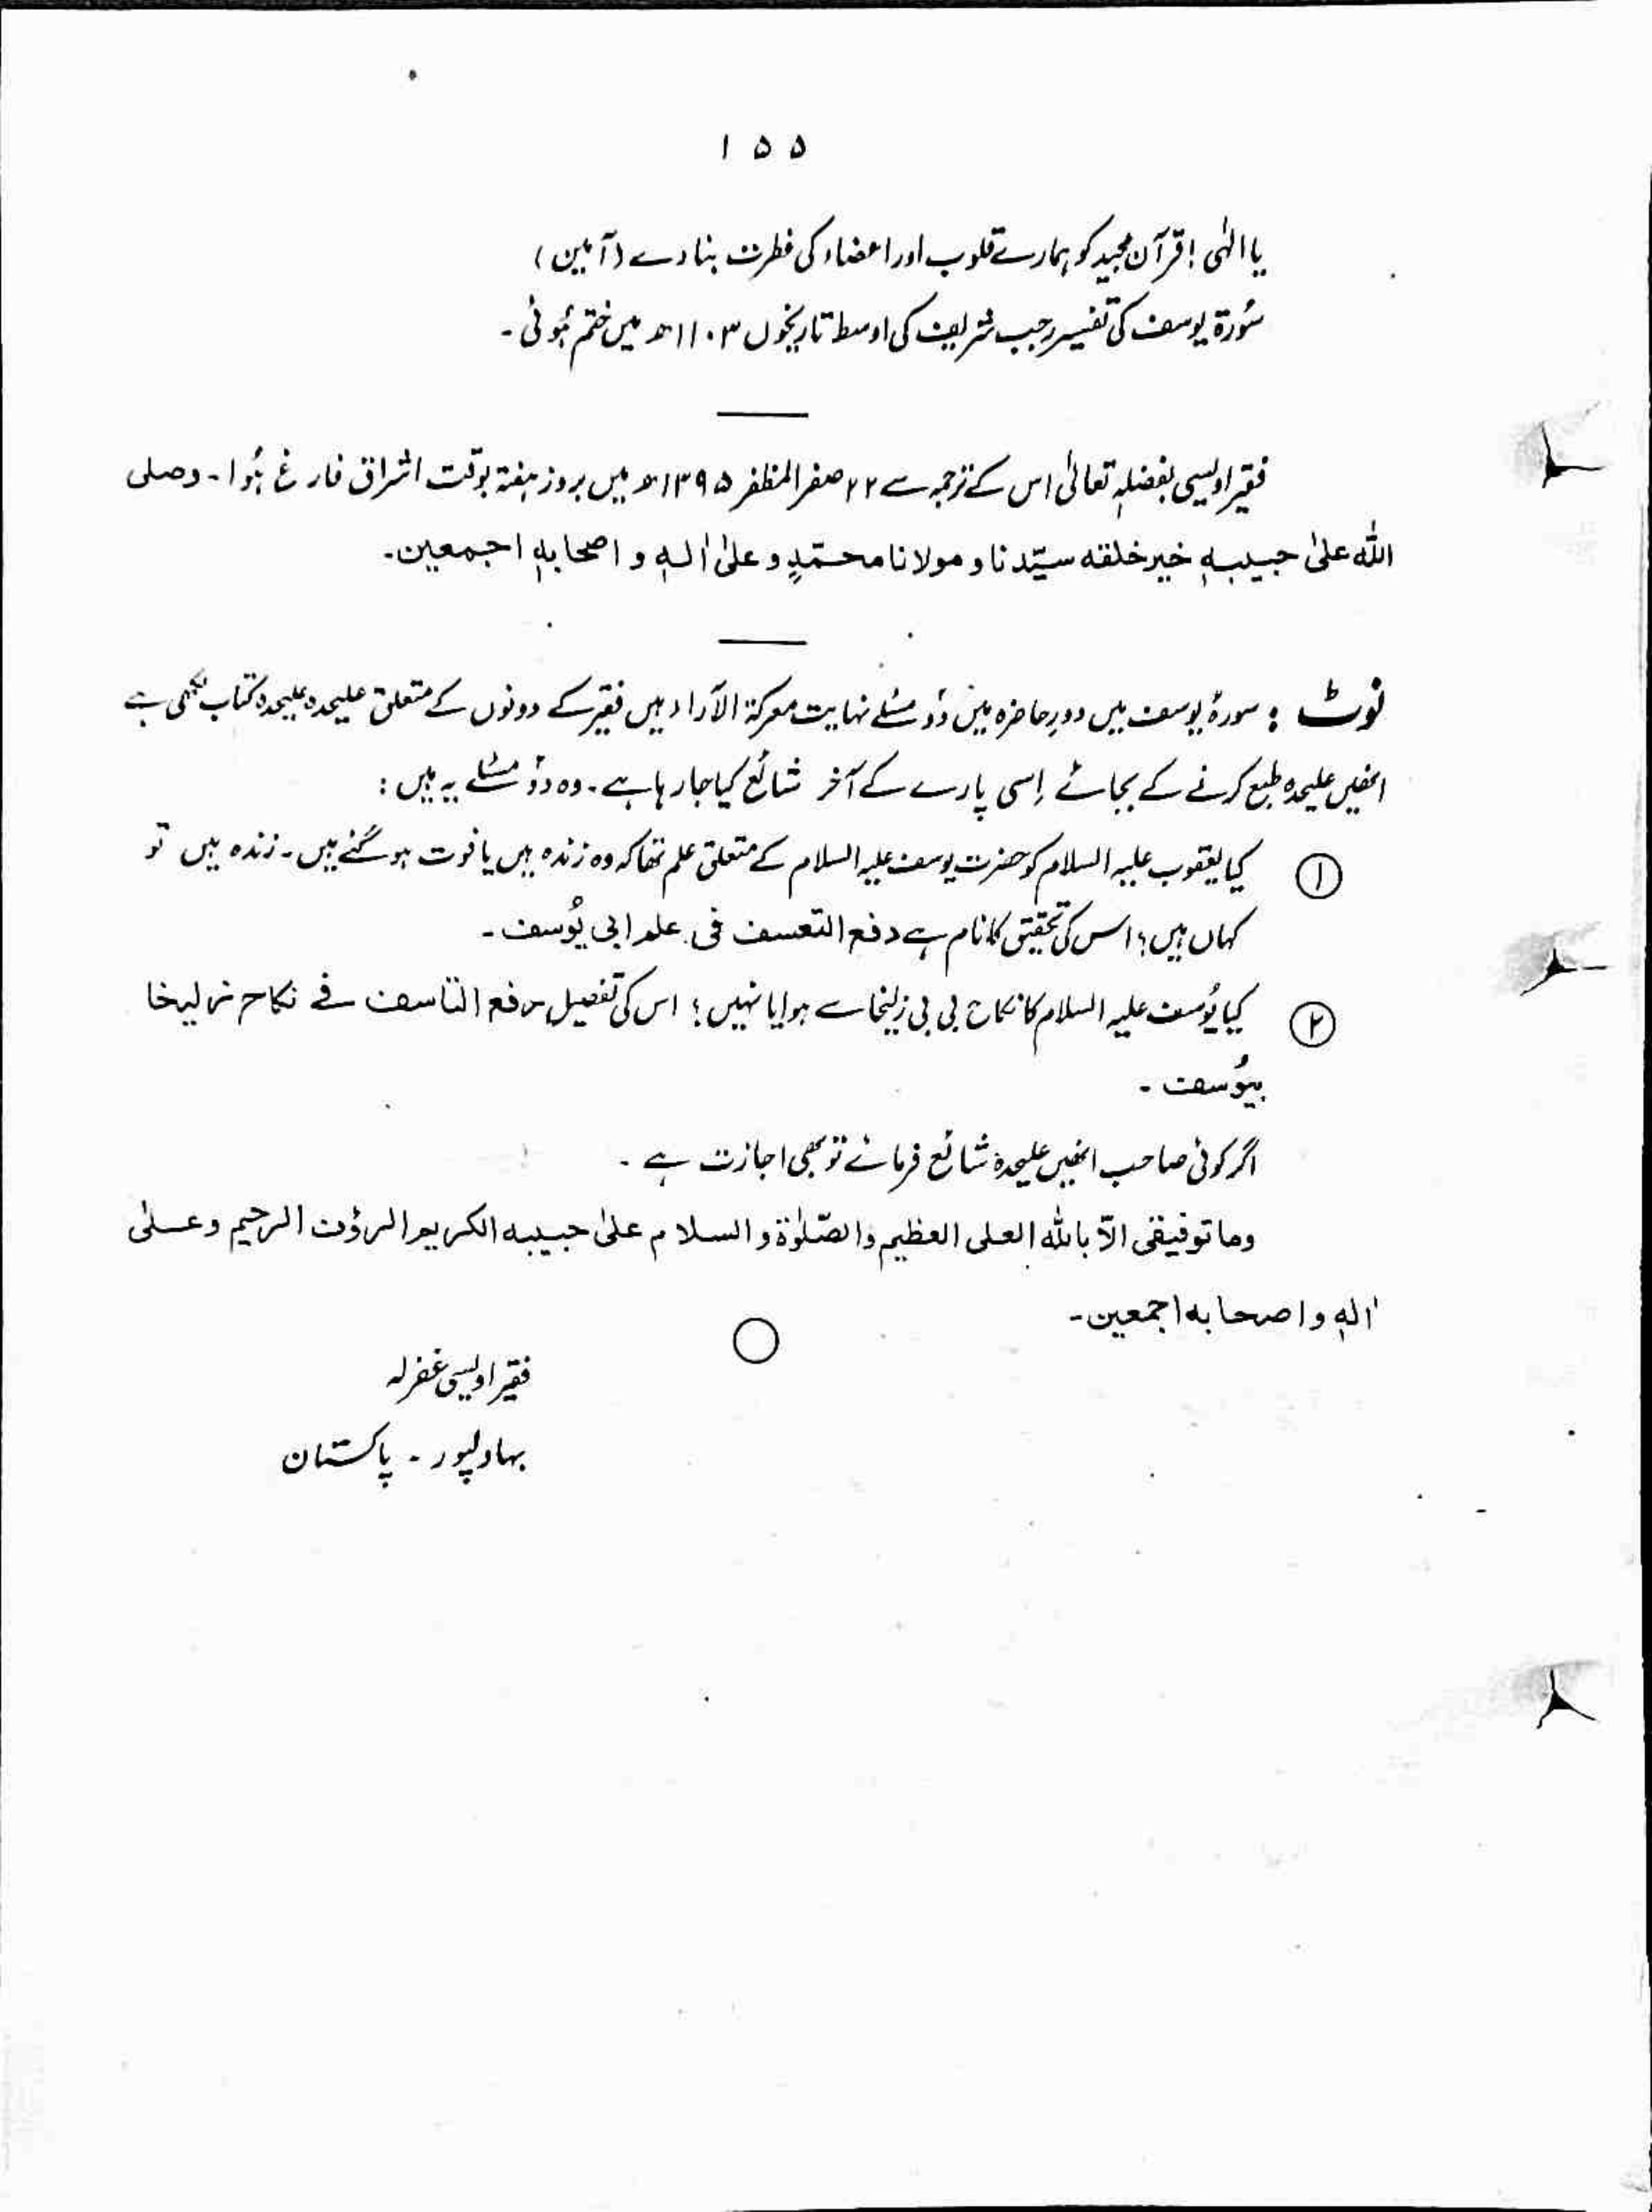 ۱۵۵
یا الٰہی! قرآن مجید کو ہمارے قلوب اور اعضاء کی فطرت بنا دے (آمین)
سُورۃ یوسف کی تفسیر رجب شریف کی اوسط تاریخوں ۱۱۰۳ھ میں ختم ہُوئی۔
فقیر اویسی بفضلہٖ تعالیٰ اس کے ترجمہ سے ۲۲ صفر المظفر ۱۳۹۵ھ میں بروز ہفتہ بوقت اشراق فارغ ہُوا۔ وصلی
اللہ علیٰ حبیبہٖ خیر خلقہ سیّدنا و مولانا محمّدٍ و علیٰ اٰلہٖ و اصحابہٖ اجمعین۔
نوٹ : سورۂ یوسف میں دورِ حاضرہ میں دوؔ مسئلے نہایت معرکۃ الآراء ہیں فقیر کے دونوں کے متعلق علیحدہ علیحدہ کتاب لکھی ہے
انھیں علیحدہ طبع کرنے کے بجائے اِسی پارے کے آخر شائع کیا جا رہا ہے۔ وہ دوؔ مسئلے یہ ہیں :
① کیا یعقوب علیہ السلام کو حضرت یوسف علیہ السلام کے متعلق علم تھا کہ وہ زندہ ہیں یا فوت ہو گئے ہیں۔ زندہ ہیں تو
کہاں ہیں؟ اس کی تحقیق کا نام ہے دفع التعسف فی علم ابی یُوسف۔
② کیا یُوسف علیہ السلام کا نکاح بی بی زلیخا سے ہوا یا نہیں؟ اس کی تفصیل رفع التاسف فے نکاح زلیخا
بیُوسف۔
اگر کوئی صاحب انھیں علیحدہ شائع فرمائے تو بھی اجازت ہے۔
وما توفیقی الّا باللہ العلی العظیم والصّلوٰۃ و السلام علیٰ حبیبہ الکریم الرؤف الرحیم وعلیٰ
اٰلہٖ واصحابہ اجمعین۔
فقیر اویسی غفرلہ
بہاولپور۔ پاکستان